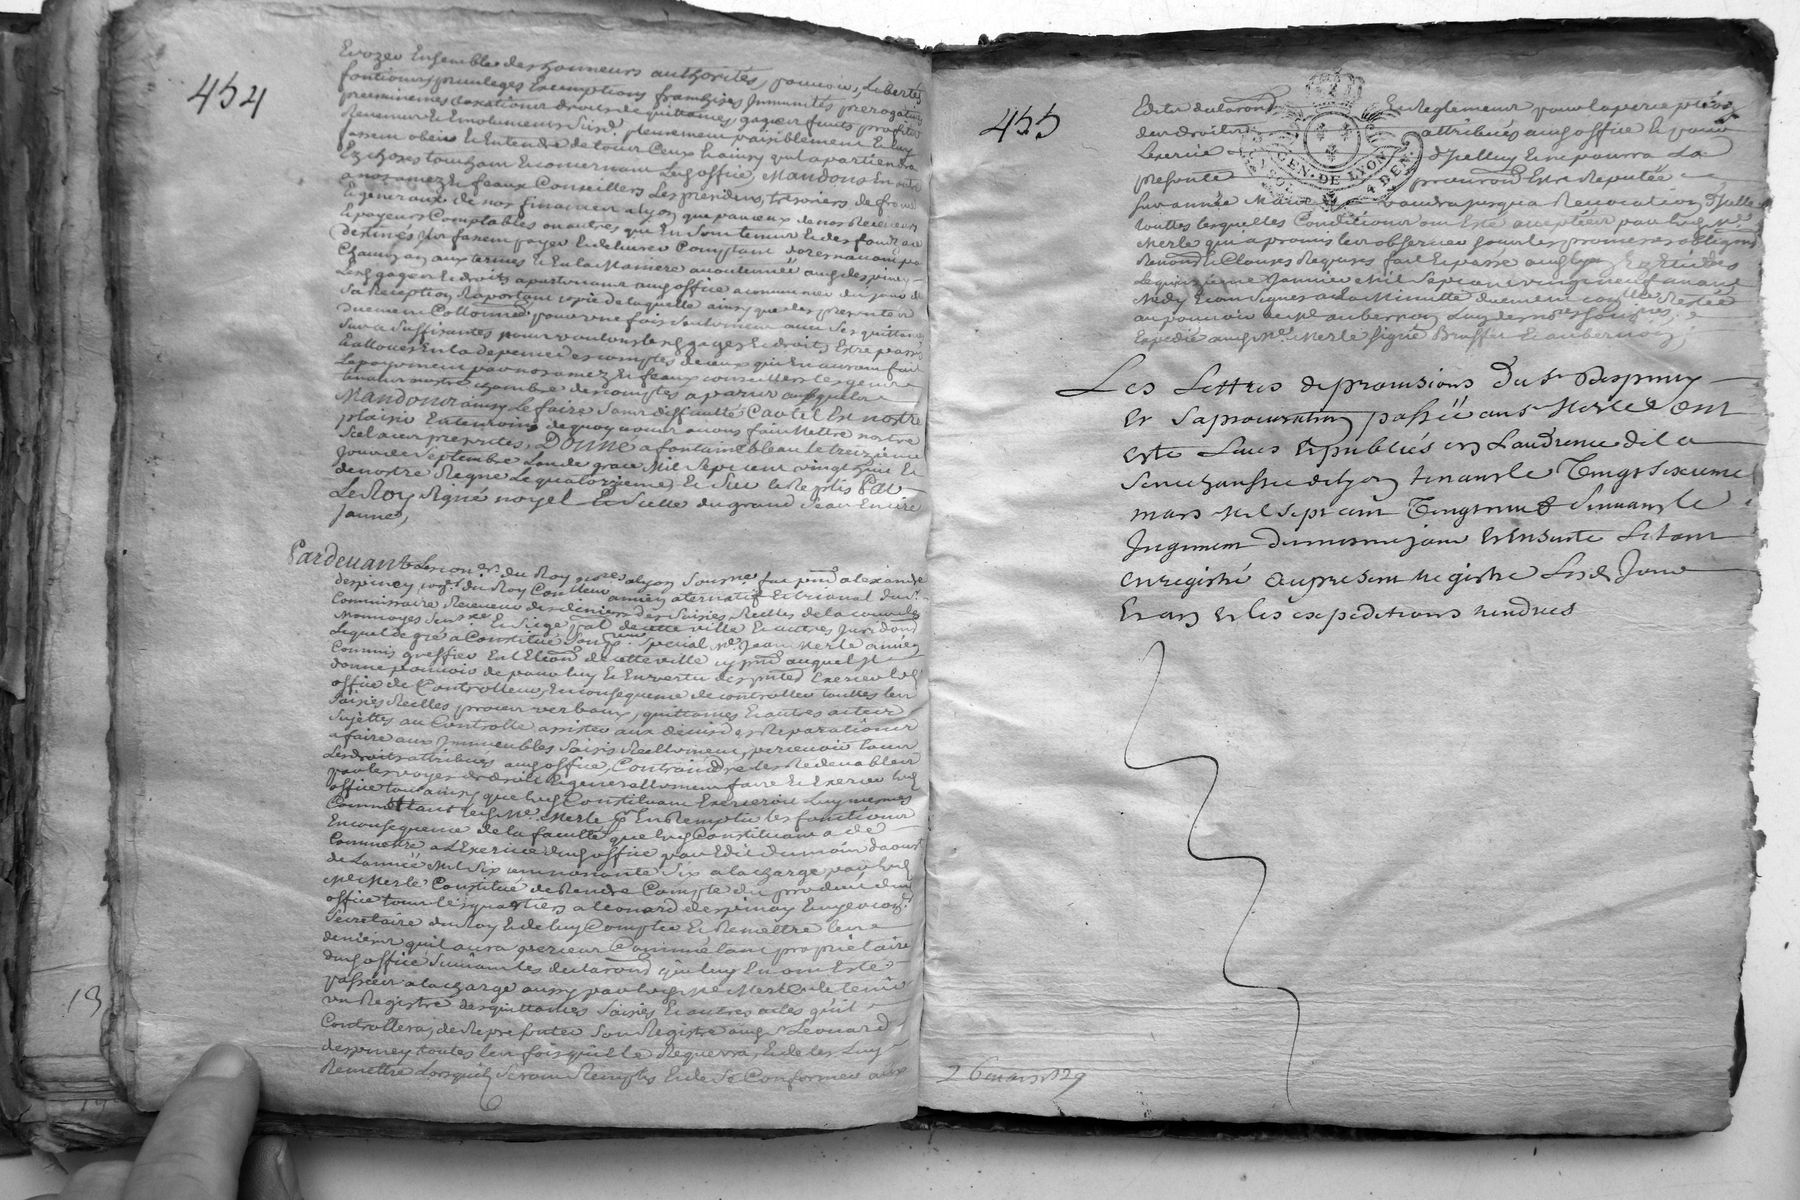 454
Evozer Ensemble des honneurs authorités, pouvoir, Libertés
fontions privileges Exemptions franchises Immunités prerogatives
preeminences taxations droits de quittances, gages fruits proffits
Revenus Et Emoluments Susd. plenement paisiblement Et luy
fassent obeir Et Entendre de tous Ceux Et ainsy quil apartiendra
Ez choses touchant Et concernant led office, Mandons En outre
a nos amez Et feaux Conseillers Les presidens, tresoriers de france
Et generaux de nos finances a Lyon que par ceux de nos Receveurs
Et payeurs Comptables ou autres qui En sont tenus Et des fonds a ce
destinés Ils fassent payer Et delivrer Comptant doresnavant par
Chacun an aux termes Et En la Maniere accoutumée aud despiney
Les gages Et droits apartenans aud office a commencer du jour de
Sa Reception Raportant copie de laquelle ainsy que des presentes
duement Collonnée pour une fois Seulement avec Ses quittances
Sur ce Suffisantes nous voulons lesd gages Et droits Estre passés
Et alloués En la depence des comptes de ceux qui En auront fait
Le payement par nos amez Et feaux conseillers les gens
tenans nostre chambre des comptes a paris ausquels
Mandons ainsy Le faire Sans difficulté Car tel Est nostre
plaisir En temoins de quoy nous avons fait Mettre nostre
Scel a ces presentes, Donné a fontainebleau le treizieme
jour de Septembre Lan de grace Mil Sept cent vingt huit Et
de nostre Regne Le quatorzieme, Et Sur le Reply Par
Le Roy Signé noyel Et Scellé du grand Seau En cire
jaune,
Pardevant les con.ers du Roy no.res a Lyon Sousnés fut pnt alexandre
despiney con.er du Roy Con.lleur ancien alternatif Et trienal du S.r
Commissaire Receveur des deniers des Saisies Reelles de la cour des
Monnoyes Sen.ee Et Siege pal de cette ville Et autres Juridons
Lequel de gré a Constitué Son pr Special Me Jean Merle ancien
Commis greffier En LElion de cette ville cy pnt auquel Il
donne pouvoir de pour luy Et En vertu des pntes Exercer led
office de Controlleur, En consequence de controller touttes les
Saisies Reelles procez verbaux, quittances Et autres actes
Sujettes au Controlle assister aux devis des Reparations
a faire aux Immeubles Saisis Reellement, percevoir tous
Les droits attribués aud office, Contraindre les Redevables
par les voyes de droit Et generallement faire Et Exercer led
office tout ainsy que led Constituant Exerceroit Luy mesmes
Commettant led Me. Merle po En Remplir les fonctions
En consequence de la faculté que led Constituant a de
Commettre a LExercice dud office par Edit du mois daoust
de Lannée Mil Six cent nonante Six a la charge par led
Me Merle Constitué de Rendre Compte du produit dud
office tous les quartiers a Leonard despiney Ecuyer con.er
Secretaire du Roy Et de luy Compter Et Remettre les
deniers quil aura perceus Comme Estant proprietaire
dud office Suivant les declarons qui luy En ont Esté
passées a la charge aussy par led Me Merle de tenir
un Registre des quittances Saisies Et autres actes quil
Controllera, de Representer Son Registre aud Sr Leonard
despiney toutes les fois quil le Requerra, Et de les Luy
Remettre Lorsquils Seront Remplis Et de Se Conformer aux
455
Edits declarons Et Reglemens pour la perception
des droits attribués aud office Et pour
Lexercice dicelluy Et ne pourra La
presente procuron Estre Reputée
Surannée Mais vaudra jusqua Revocation d'Icelle
touttes lesquelles Conditions ont Esté acceptées par led Me.
Merle qui a promis les observer sous les promesses obligons
Renonons Et Clauses Requises fait Et passé aud Lyon Ez Etudes
Le quinzieme Janvier Mil Sept cent vingt neuf avant
Midy Et ont Signé a La Minutte duement con.llee Restée
au pouvoir de Me aubernon Luy des no.res Sousnes,
Expedié aud Me. Merle Signé Bruffet Et aubernon,
GEN. DE LYON
4 DEN.
Les Lettres de provisions Du Sr Despiney
Et Sa procuration passéé au Sr Merle ont
esté Lues Et publiés en Laudience de la
Senechaussée de Lyon tenant le Vingt sixieme
mars Mil Sept cent Vingt neuf Suivant le
Jugement Dumesme jour et Ensuite Setant
enregistré au present Registre Lesd Jour
Et an Et les expeditions rendues
26 mars 1729